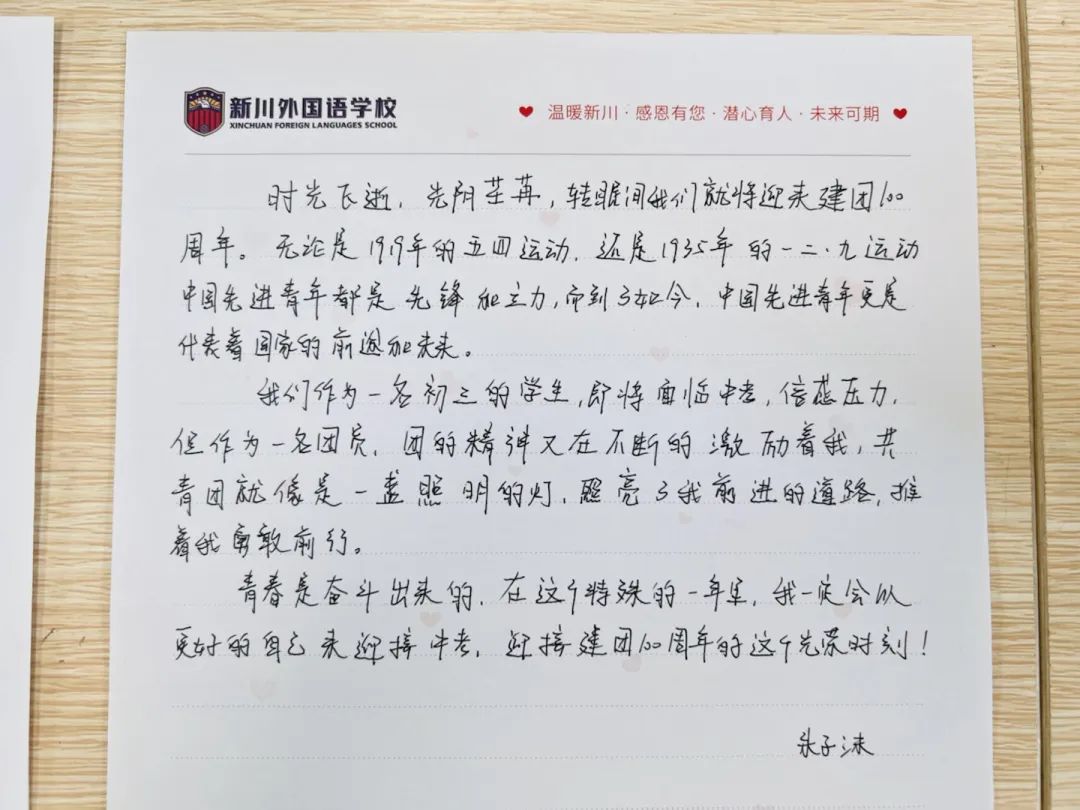 新川外国语学校
XINCHUAN FOREIGN LANGUAGES SCHOOL
温暖新川·感恩有您·潜心育人·未来可期
时光飞逝，光阴荏苒，转眼间我们就将迎来建团100
周年。无论是1919年的五四运动，还是1935年的一二·九运动
中国先进青年都是先锋和主力，而到了如今，中国先进青年更是
代表着国家的前途和未来。
我们作为一名初三的学生，即将面临中考，倍感压力，
但作为一名团员，团的精神又在不断的激励着我，共
青团就像是一盏照明的灯，照亮了我前进的道路，推
着我勇敢前行。
青春是奋斗出来的，在这个特殊的一年里，我一定会以
更好的自己来迎接中考，迎接建团100周年的这个光荣时刻！
张子沫